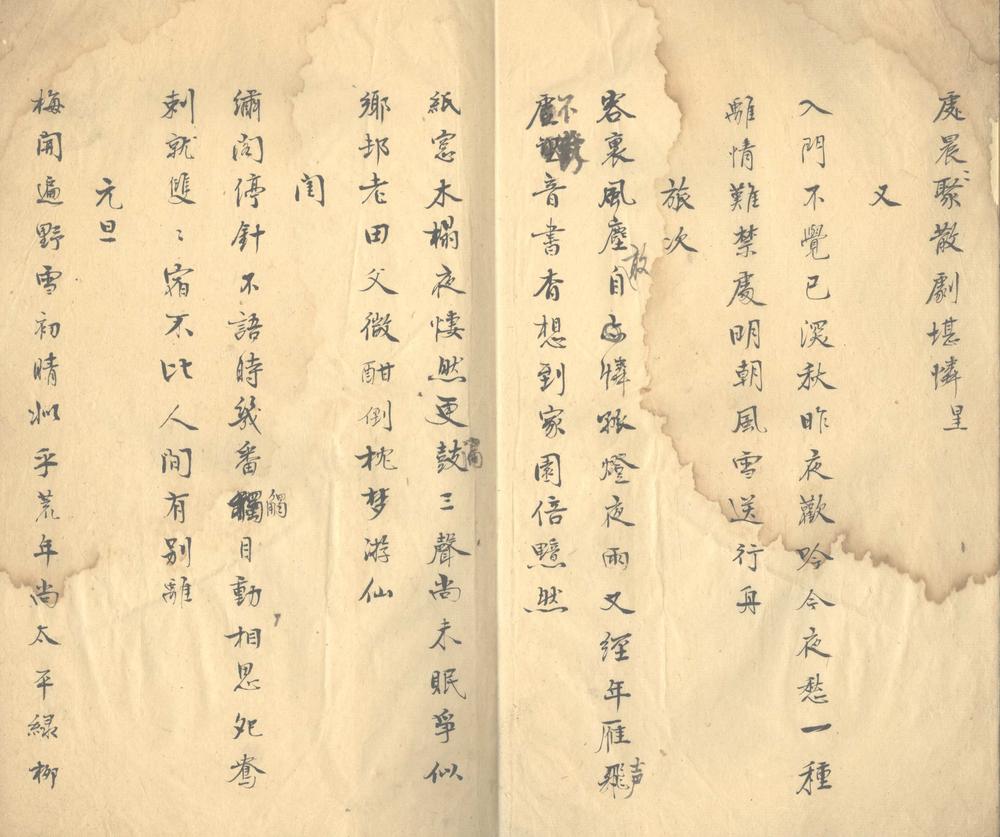 處晨ミ聚散劇堪憐星
又
入門不覺已深秋昨夜歡吟今夜愁一種
離情難禁處明朝風雪送行舟
旅次
客裏風塵自敢憐孤燈夜雨又經年雁飛声
不音書杳想到家園倍黯然
紙窓木榻夜悽然更鼓三聲尚未眠爭似
鄉邨老田父微酣倒枕梦游仙
閨
繡閣停針不語時幾番觸目動相思死鴦
刺就雙ミ宿不比人間有别離
元旦
梅開遍野雪初晴似乎荒年尚太平緑柳